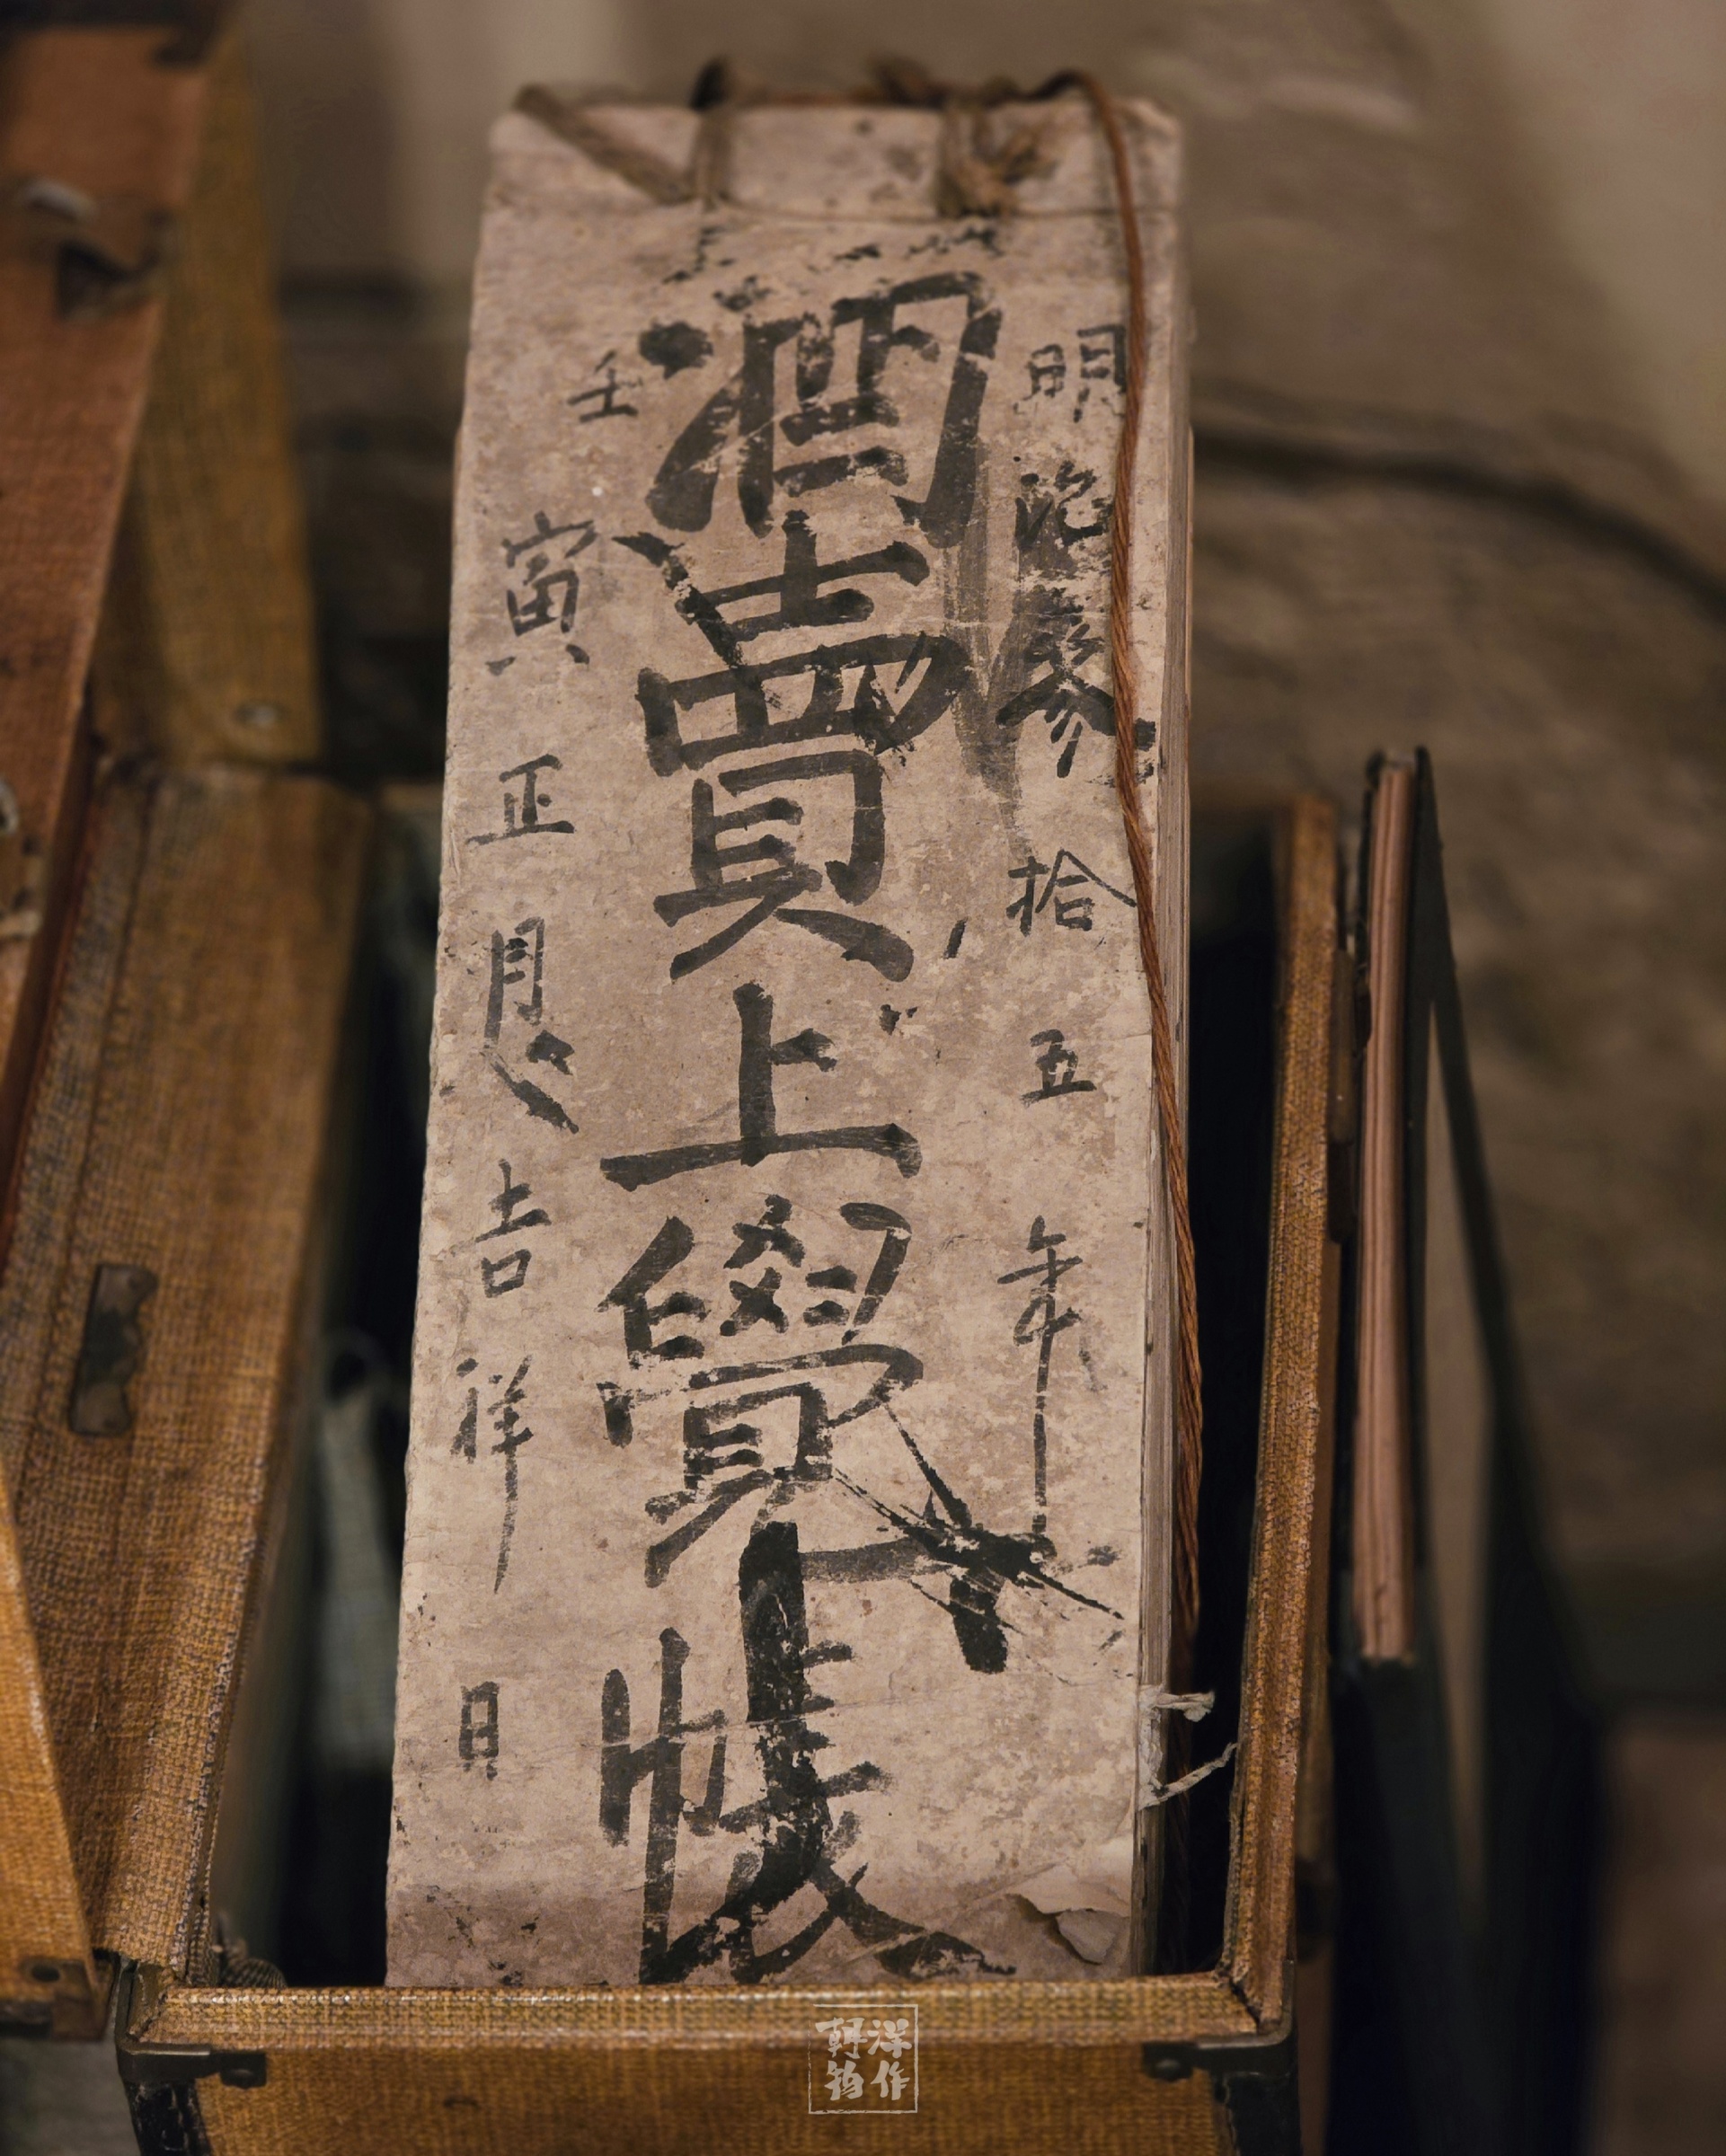 明治參拾五年
酒賣上覺帳
壬寅正月吉祥日